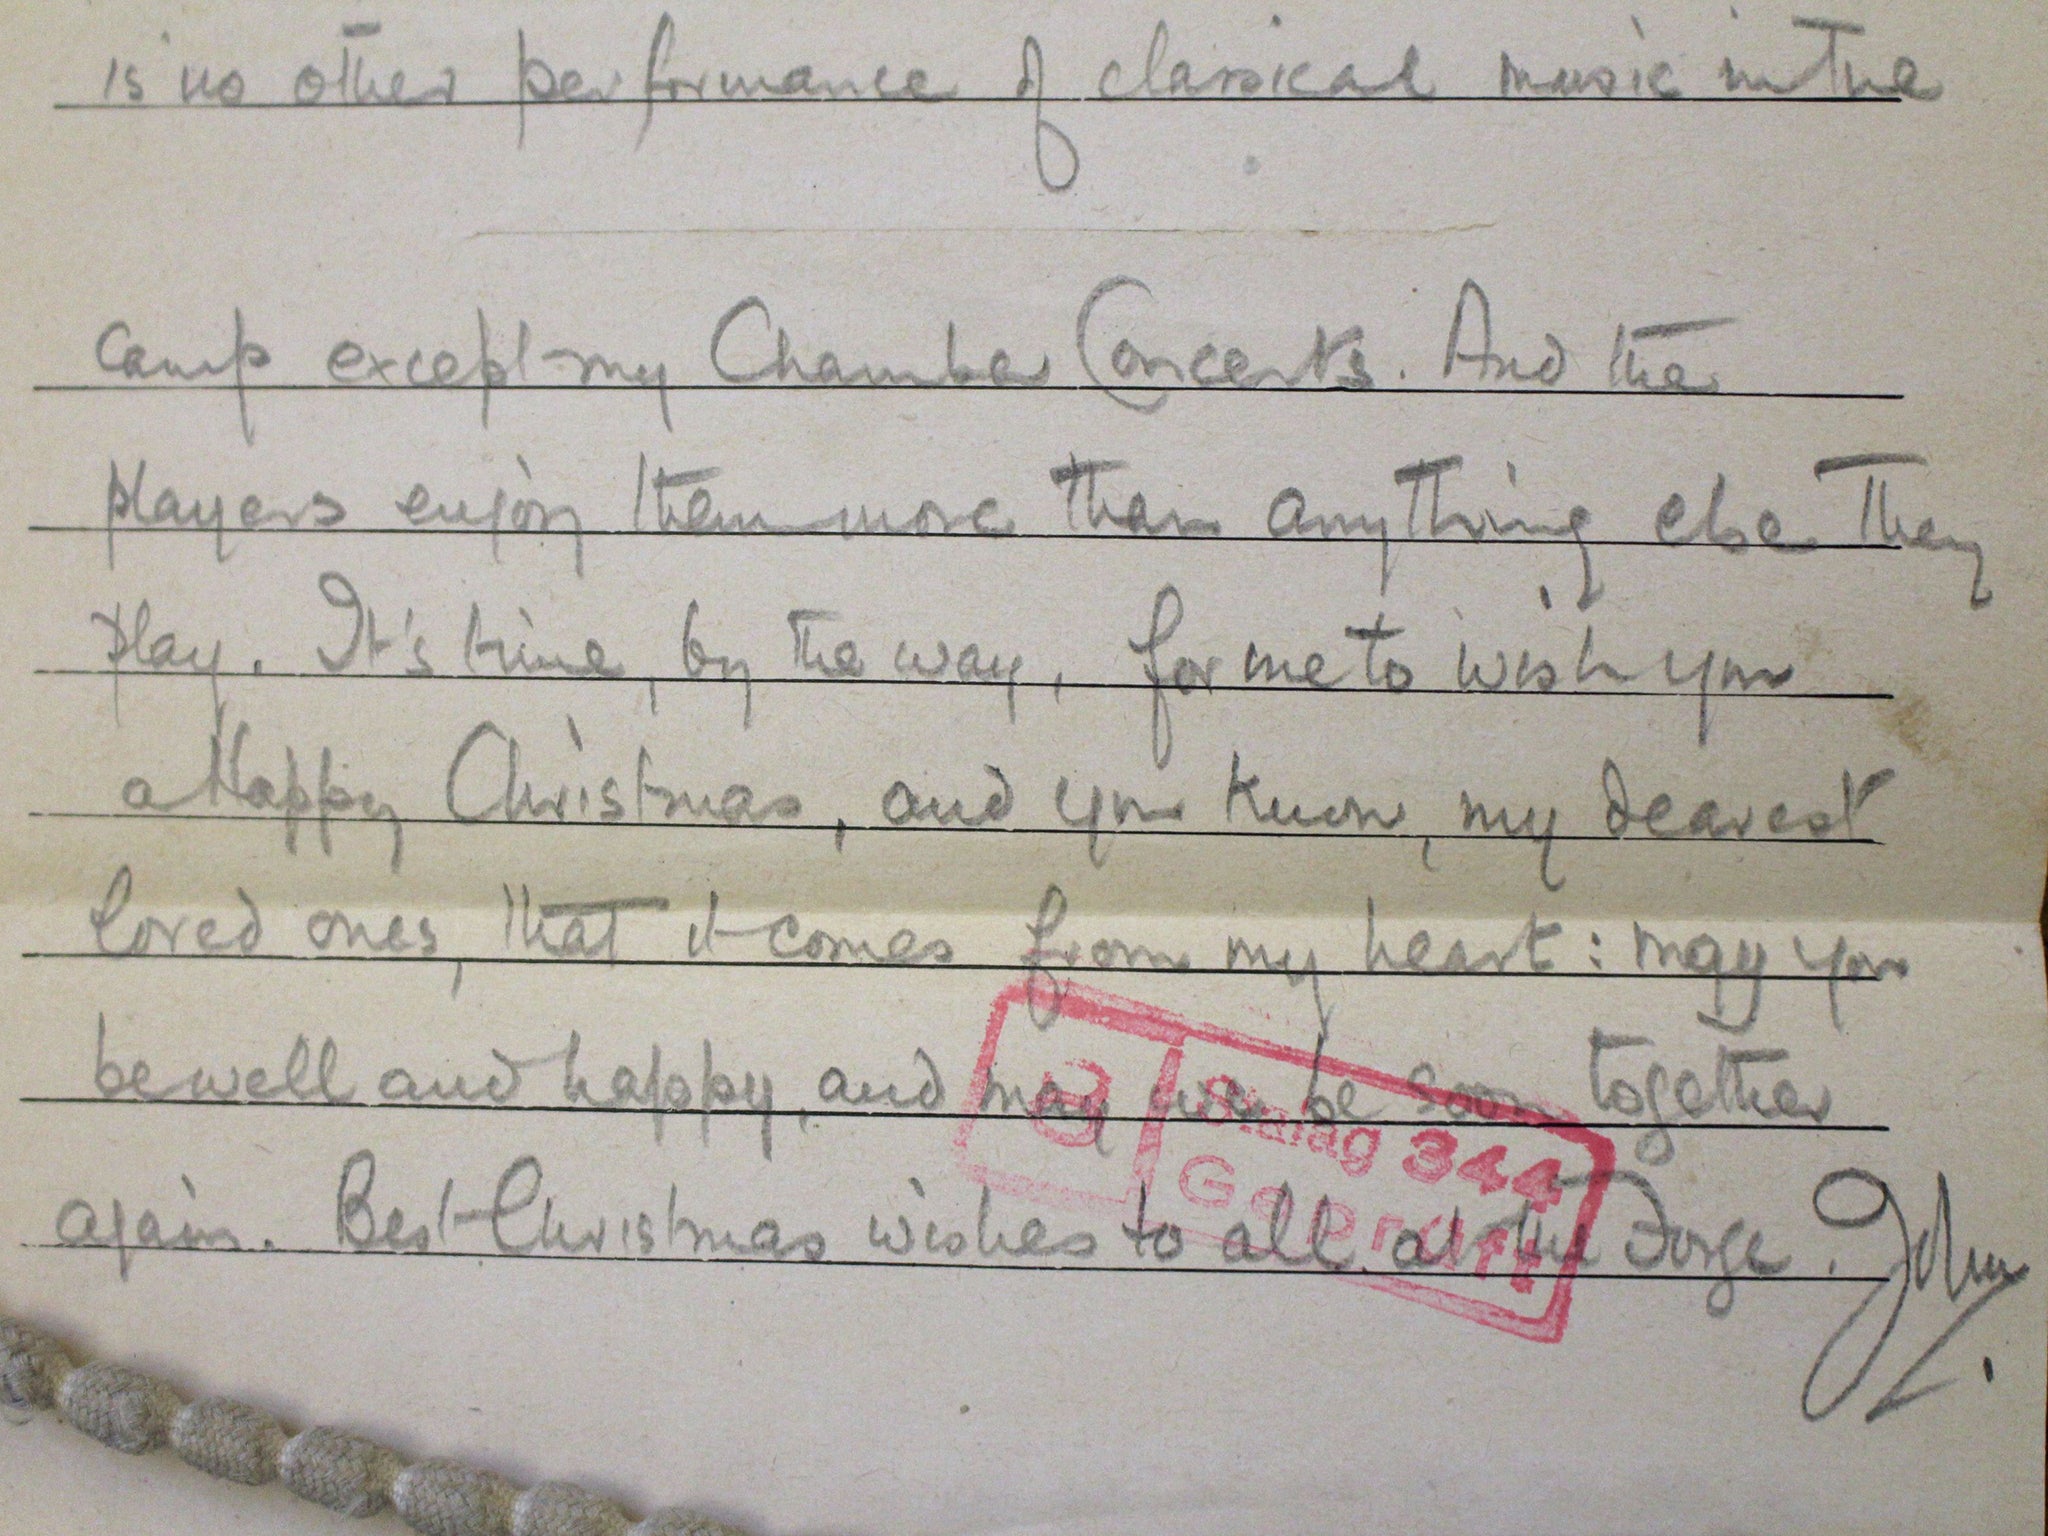 is no other performance of classical music in the
camp except my Chamber Concerts. And the
players enjoy them more than anything else they
play. It's time, by the way, for me to wish you
a Happy Christmas, and you know, my dearest
loved ones, that it comes from my heart: may you
be well and happy, and may we be soon together
again. Best Christmas wishes to all at the Forge. John
Stalag 344
Geprüft